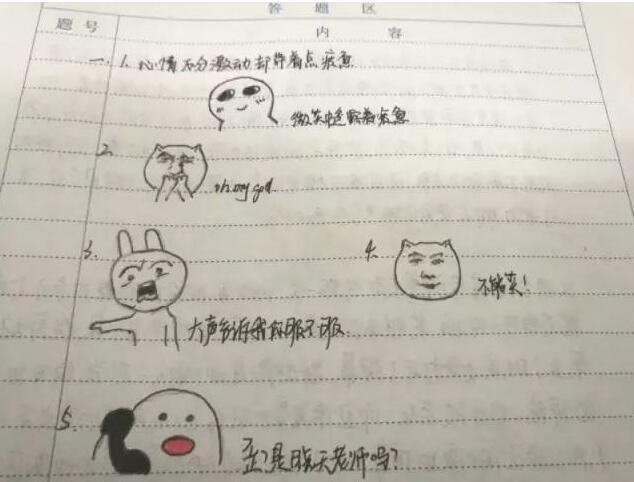 答 题 区
题 号 内 容
一. 1. 心情十分激动却带着点疲惫
微笑中透露着疲惫
2. oh my god
3. 4. 不能笑!
大声告诉我你服不服
5. 歪?是 天老师吗?